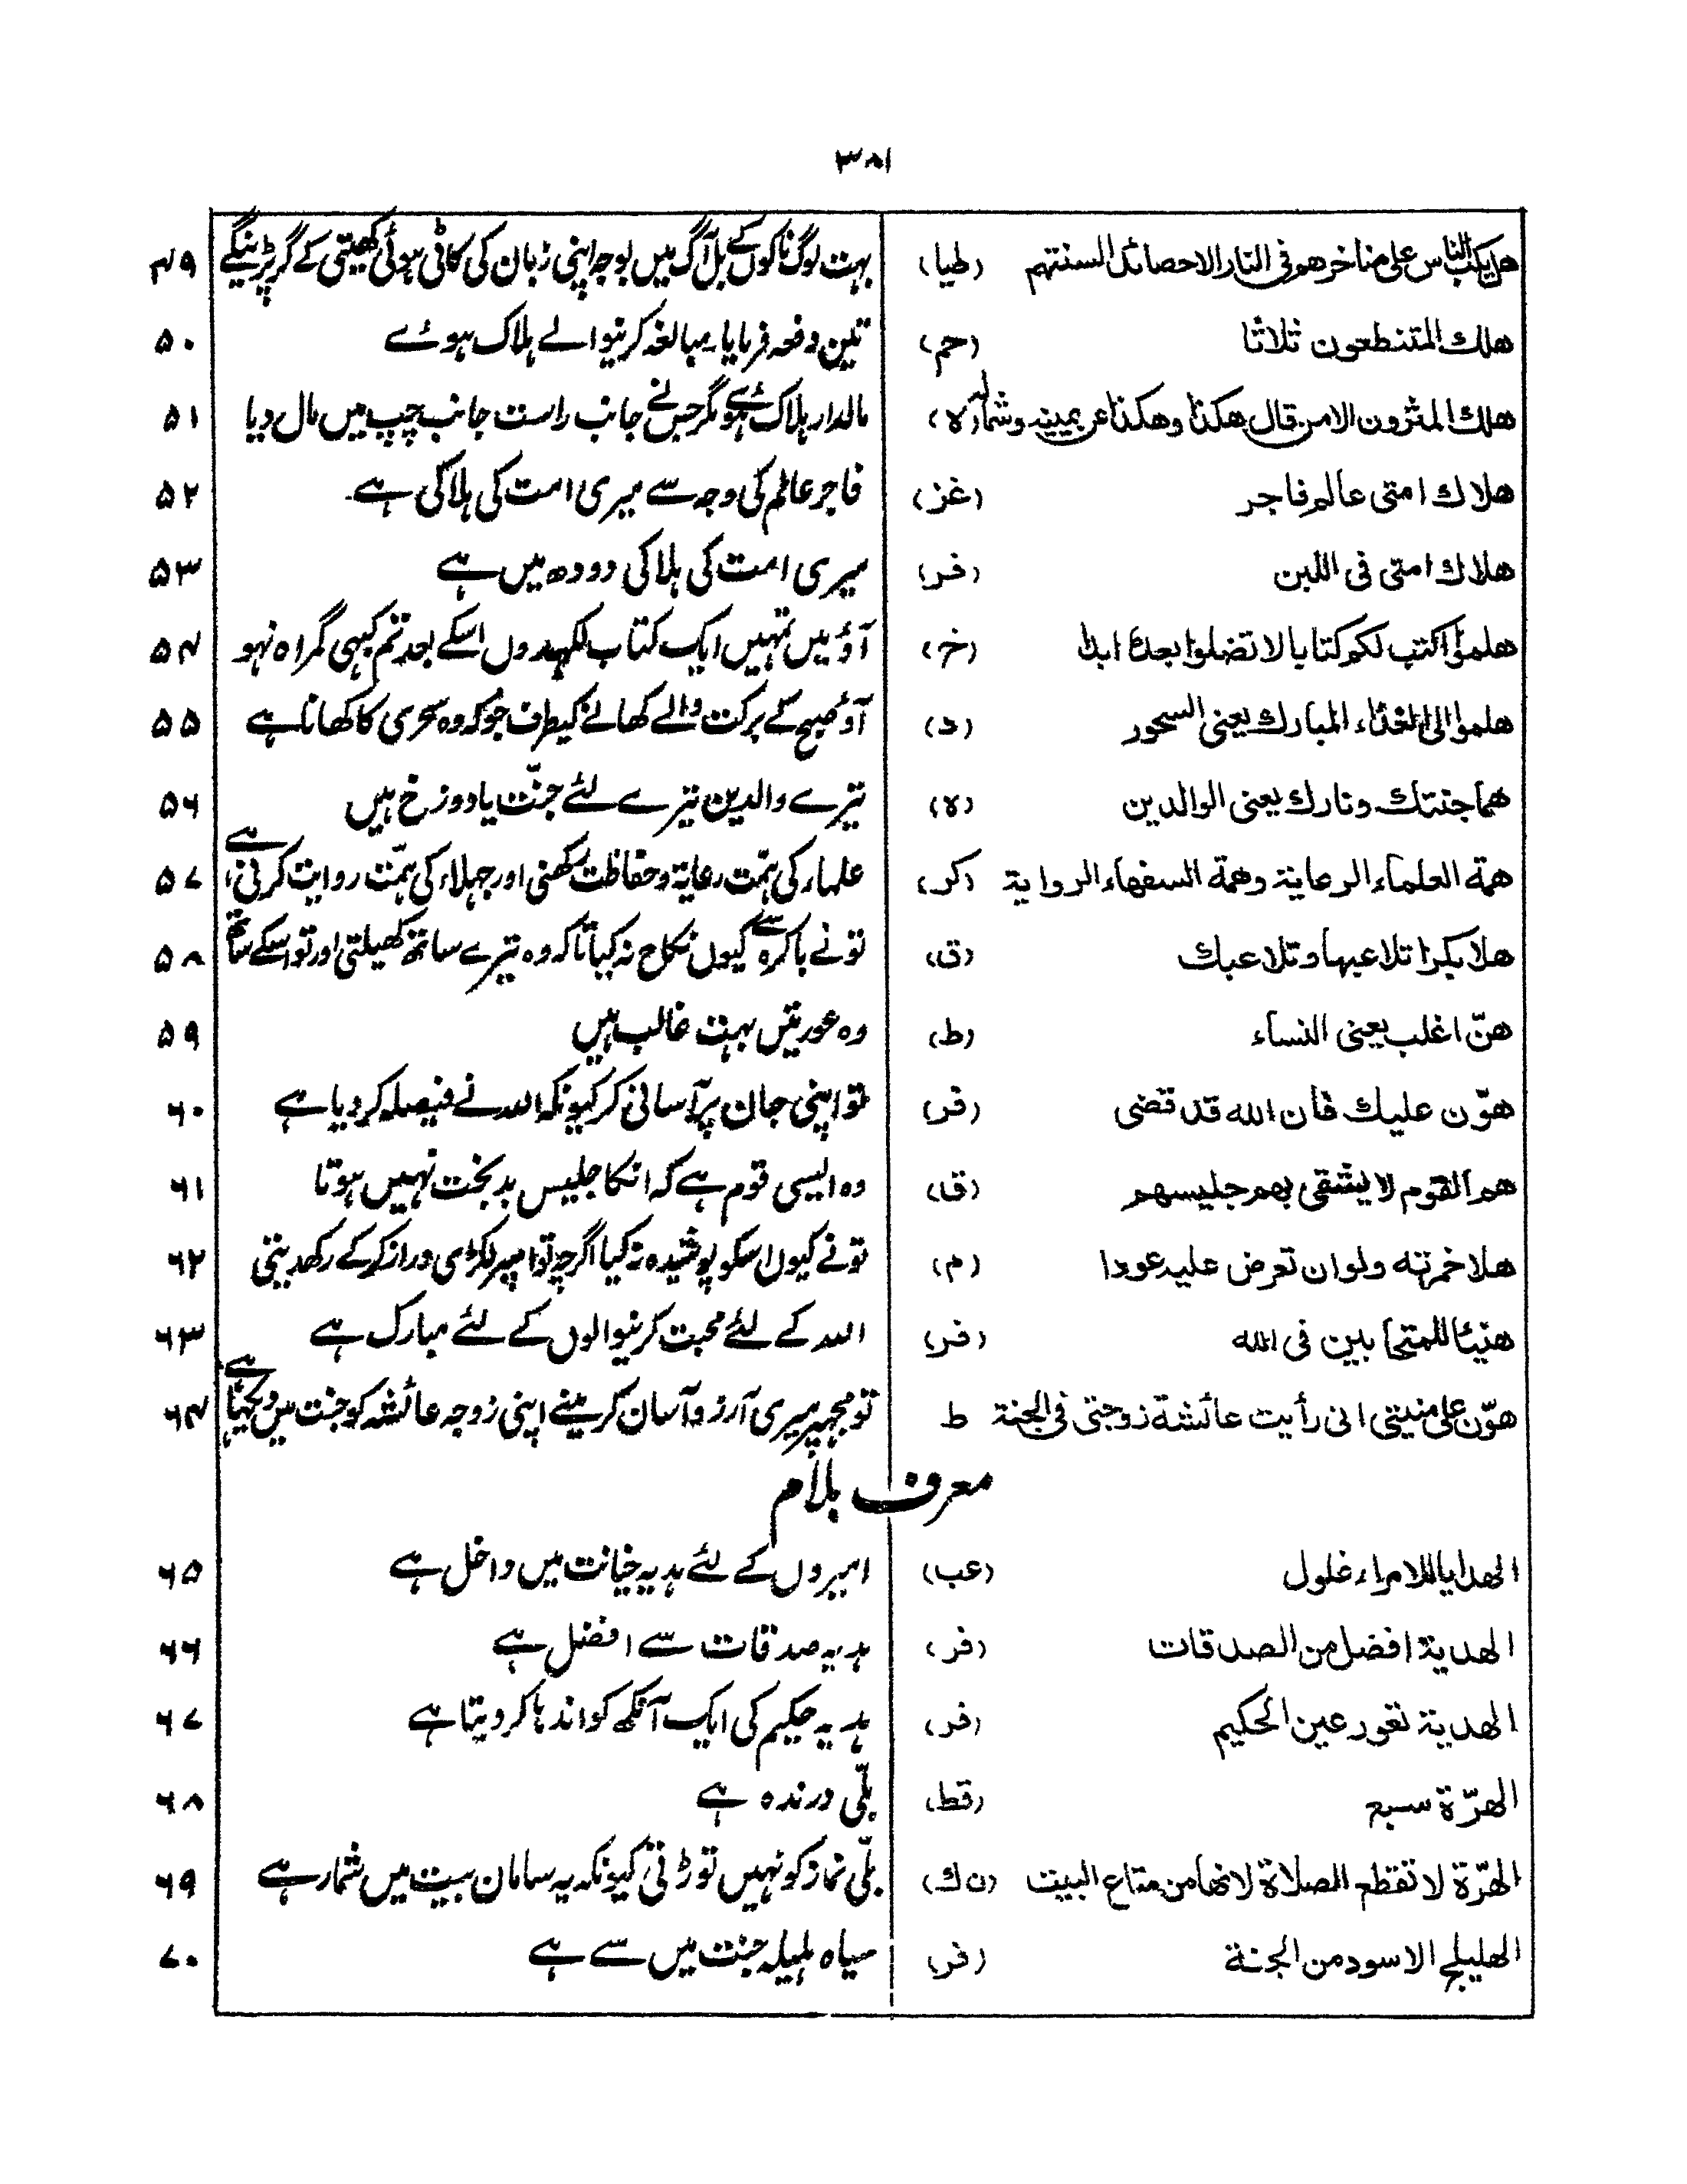 ۳۸۱
هل یکب الناس علی مناخرهم فی النار الا حصائد السنتهم (طیا) بہت لوگ ناکوں کے بل آگ میں بوجہ اپنی زبان کی کاٹی ہوئی کھیتی کے گر پڑینگے ۴۹
هلك المتنطعون ثلاثا (حم) تین دفعہ فرمایا، مبالغہ کرنیوالے ہلاک ہوئے ۵۰
هلك المثرون الا من قال هکذا وهکذا عن یمینه وشماله (ہ) مالدار ہلاک ہوئے مگر جس نے جانب راست جانب چپ میں مال دیا ۵۱
هلاك امتی عالم فاجر (غز) فاجر عالم کی وجہ سے میری امت کی ہلاکی ہے ۵۲
هلاك امتی فی اللبن (فر) میری امت کی ہلاکی دودھ میں ہے ۵۳
هلموا اکتب لکم کتابا لا تضلوا بعدہ ابدا (خ) آؤ میں تمہیں ایک کتاب لکھدوں اسکے بعد تم کبہی گمراہ نہو ۵۴
هلموا الی الغذاء المبارك یعنی السحور (د) آؤ صبح کے برکت والے کھانے کیطرف جو کہ وہ سحری کا کھانا ہے ۵۵
هما جنتك ونارك یعنی الوالدین (ہ) تیرے والدین تیرے لئے جنّت یا دوزخ ہیں ۵۶
همة العلماء الرعایة وهمة السفهاء الروایة (کر) علماء کی ہمّت رعایۃ وحفاظت رکھنی اور جہلاء کی ہمّت روایت کرنی ہے ۵۷
هلا بکرا تلاعبها وتلاعبك (ق) تو نے باکرہ سے کیوں نکاح نہ کیا تاکہ وہ تیرے ساتھ کھیلتی اور تو اسکے ساتھ ۵۸
هنّ اغلب یعنی النساء (ط) وہ عورتیں بہت غالب ہیں ۵۹
هوّن علیك فأن الله قد قضی (فر) تو اپنی جان پر آسانی کر کیونکہ اللہ نے فیصلہ کر دیا ہے ۶۰
هم القوم لا یشقی بهم جلیسهم (قا) وہ ایسی قوم ہے کہ انکا جلیس بدبخت نہیں ہوتا ۶۱
هلا خمرته ولو ان تعرض علیه عودا (م) تو نے کیوں اسکو پوشیدہ نہ کیا اگرچہ تو اسپر لکڑی دراز کرکے رکھدیتی ۶۲
هنیئا للمتحابین فی الله (فر) اللہ کے لئے محبت کرنیوالوں کے لئے مبارک ہے ۶۳
هوّن علی منیتی انی رأیت عائشة زوجتی فی الجنة ط تو مجہپر میری آرزو آسان کر مینے اپنی زوجہ عائشہ کو جنت میں دیکہا ہے ۶۴
معرف بلام
الهدایا للامراء غلول (عب) امیروں کے لئے ہدیہ خیانت میں داخل ہے ۶۵
الهدیة افضل من الصدقات (فر) ہدیہ صدقات سے افضل ہے ۶۶
الهدیة تعور عین الحکیم (فر) ہدیہ حکیم کی ایک آنکھ کو اندہا کر دیتا ہے ۶۷
الهرّة سبع (قط) بلّی درندہ ہے ۶۸
الهرّة لا تقطع الصلاة لانها من متاع البیت (ہ ك) بلّی نماز کو نہیں توڑتی کیونکہ یہ سامان بیت میں شمار ہے ۶۹
الهلیلج الاسود من الجنة (فر) سیاہ ہلیلہ جنت میں سے ہے ۷۰